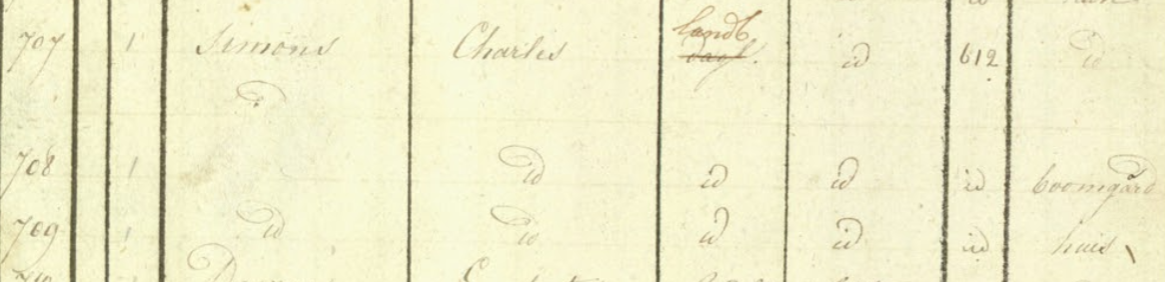 707 1 Simons Charles landb. id 612 id
id
708 1 id id id id boomgard
709 1 id id id id id huis